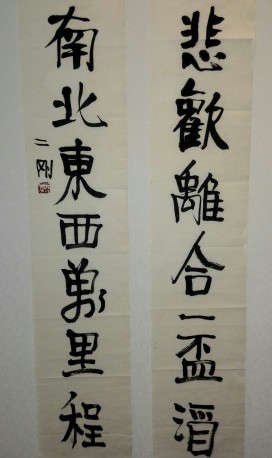 悲歡離合一盃酒
南北東西萬里程
二剛